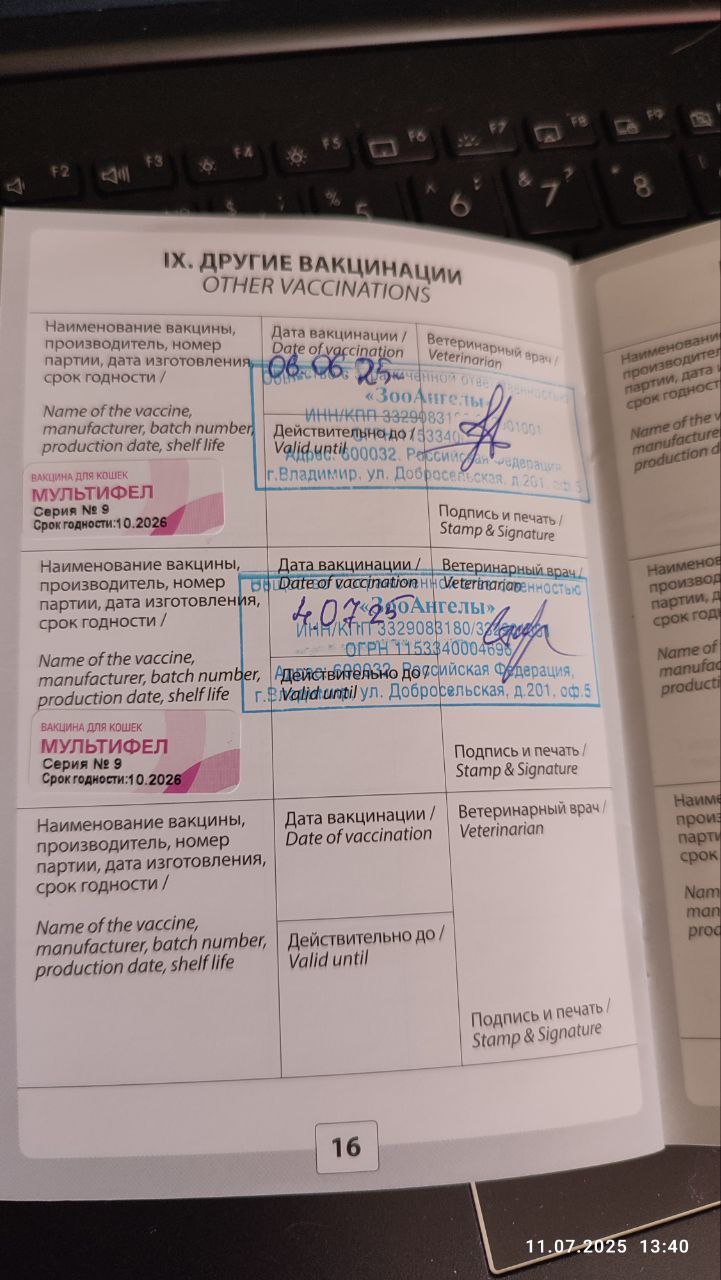 F2
F3
F4
F5
F6
F7
F8
F9
%
5
^
6
&
7
8
IX. ДРУГИЕ ВАКЦИНАЦИИ
OTHER VACCINATIONS
Наименование вакцины,
производитель, номер
партии, дата изготовления,
срок годности /
Name of the vaccine,
manufacturer, batch number,
production date, shelf life
ВАКЦИНА ДЛЯ КОШЕК
МУЛЬТИФЕЛ
Серия № 9
Срок годности:10.2026
Дата вакцинации /
Date of vaccination
06.06.25
Действительно до /
Valid until
Ветеринарный врач /
Veterinarian
«ЗооАнгелы»
ИНН/КПП
Адрес: 600032. Российская Федерация,
г.Владимир, ул. Добросельская, д.201, оф.5
Подпись и печать /
Stamp & Signature
Наименование вакцины,
производитель, номер
партии, дата изготовления,
срок годности /
Name of the vaccine,
manufacturer, batch number,
production date, shelf life
ВАКЦИНА ДЛЯ КОШЕК
МУЛЬТИФЕЛ
Серия № 9
Срок годности:10.2026
Дата вакцинации /
Date of vaccination
4.07.25
Действительно до /
Valid until
Ветеринарный врач /
Veterinarian
«ЗооАнгелы»
ИНН/КПП 3329083180/
ОГРН 1153340004696
Адрес: 600032, Российская Федерация,
г.Владимир, ул. Добросельская, д.201, оф.5
Подпись и печать /
Stamp & Signature
Наименование вакцины,
производитель, номер
партии, дата изготовления,
срок годности /
Name of the vaccine,
manufacturer, batch number,
production date, shelf life
Дата вакцинации /
Date of vaccination
Действительно до /
Valid until
Ветеринарный врач /
Veterinarian
Подпись и печать /
Stamp & Signature
16
11.07.2025 13:40